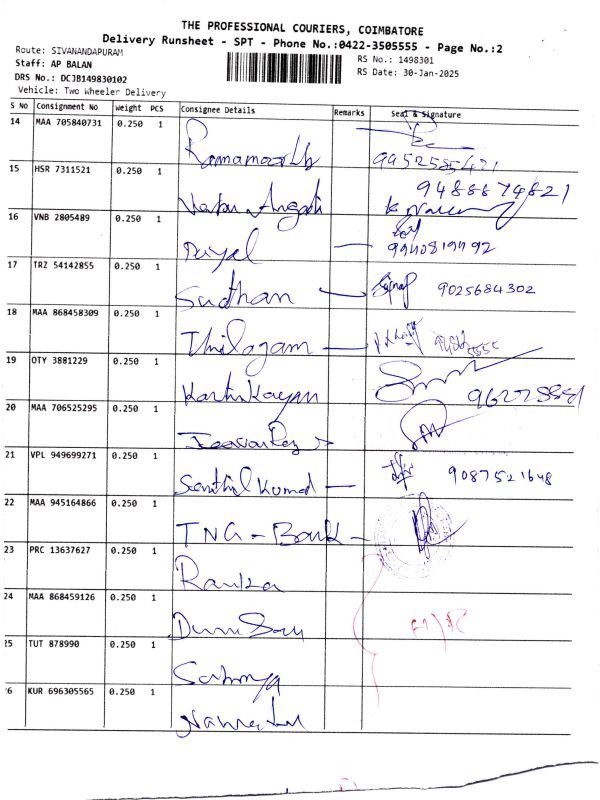 THE PROFESSIONAL COURIERS, COIMBATORE
Delivery Runsheet - SPT - Phone No.:0422-3505555 - Page No.:2
Route: SIVANANDAPURAM
RS No.: 1498301
Staff: AP BALAN
RS Date: 30-Jan-2025
DRS No.: DCJB149830102
Vehicle: Two Wheeler Delivery
S No Consignment No Weight PCS Consignee Details Remarks Seal & Signature
14 MAA 705840731 0.250 1
Ramamoorthy 9952585421
15 HSR 7311521 0.250 1
9488874821
16 VNB 2805489 0.250 1
Duyal 9940819792
17 TRZ 54142855 0.250 1
Sudhan 9025684302
18 MAA 868458309 0.250 1
Thilagam
19 OTY 3881229 0.250 1
KarthiKayan
20 MAA 706525295 0.250 1
21 VPL 949699271 0.250 1
Senthil Kumar 9087521648
22 MAA 945164866 0.250 1
TNG - Bank
23 PRC 13637627 0.250 1
Ranka
24 MAA 868459126 0.250 1
25 TUT 878990 0.250 1
26 KUR 696305565 0.250 1